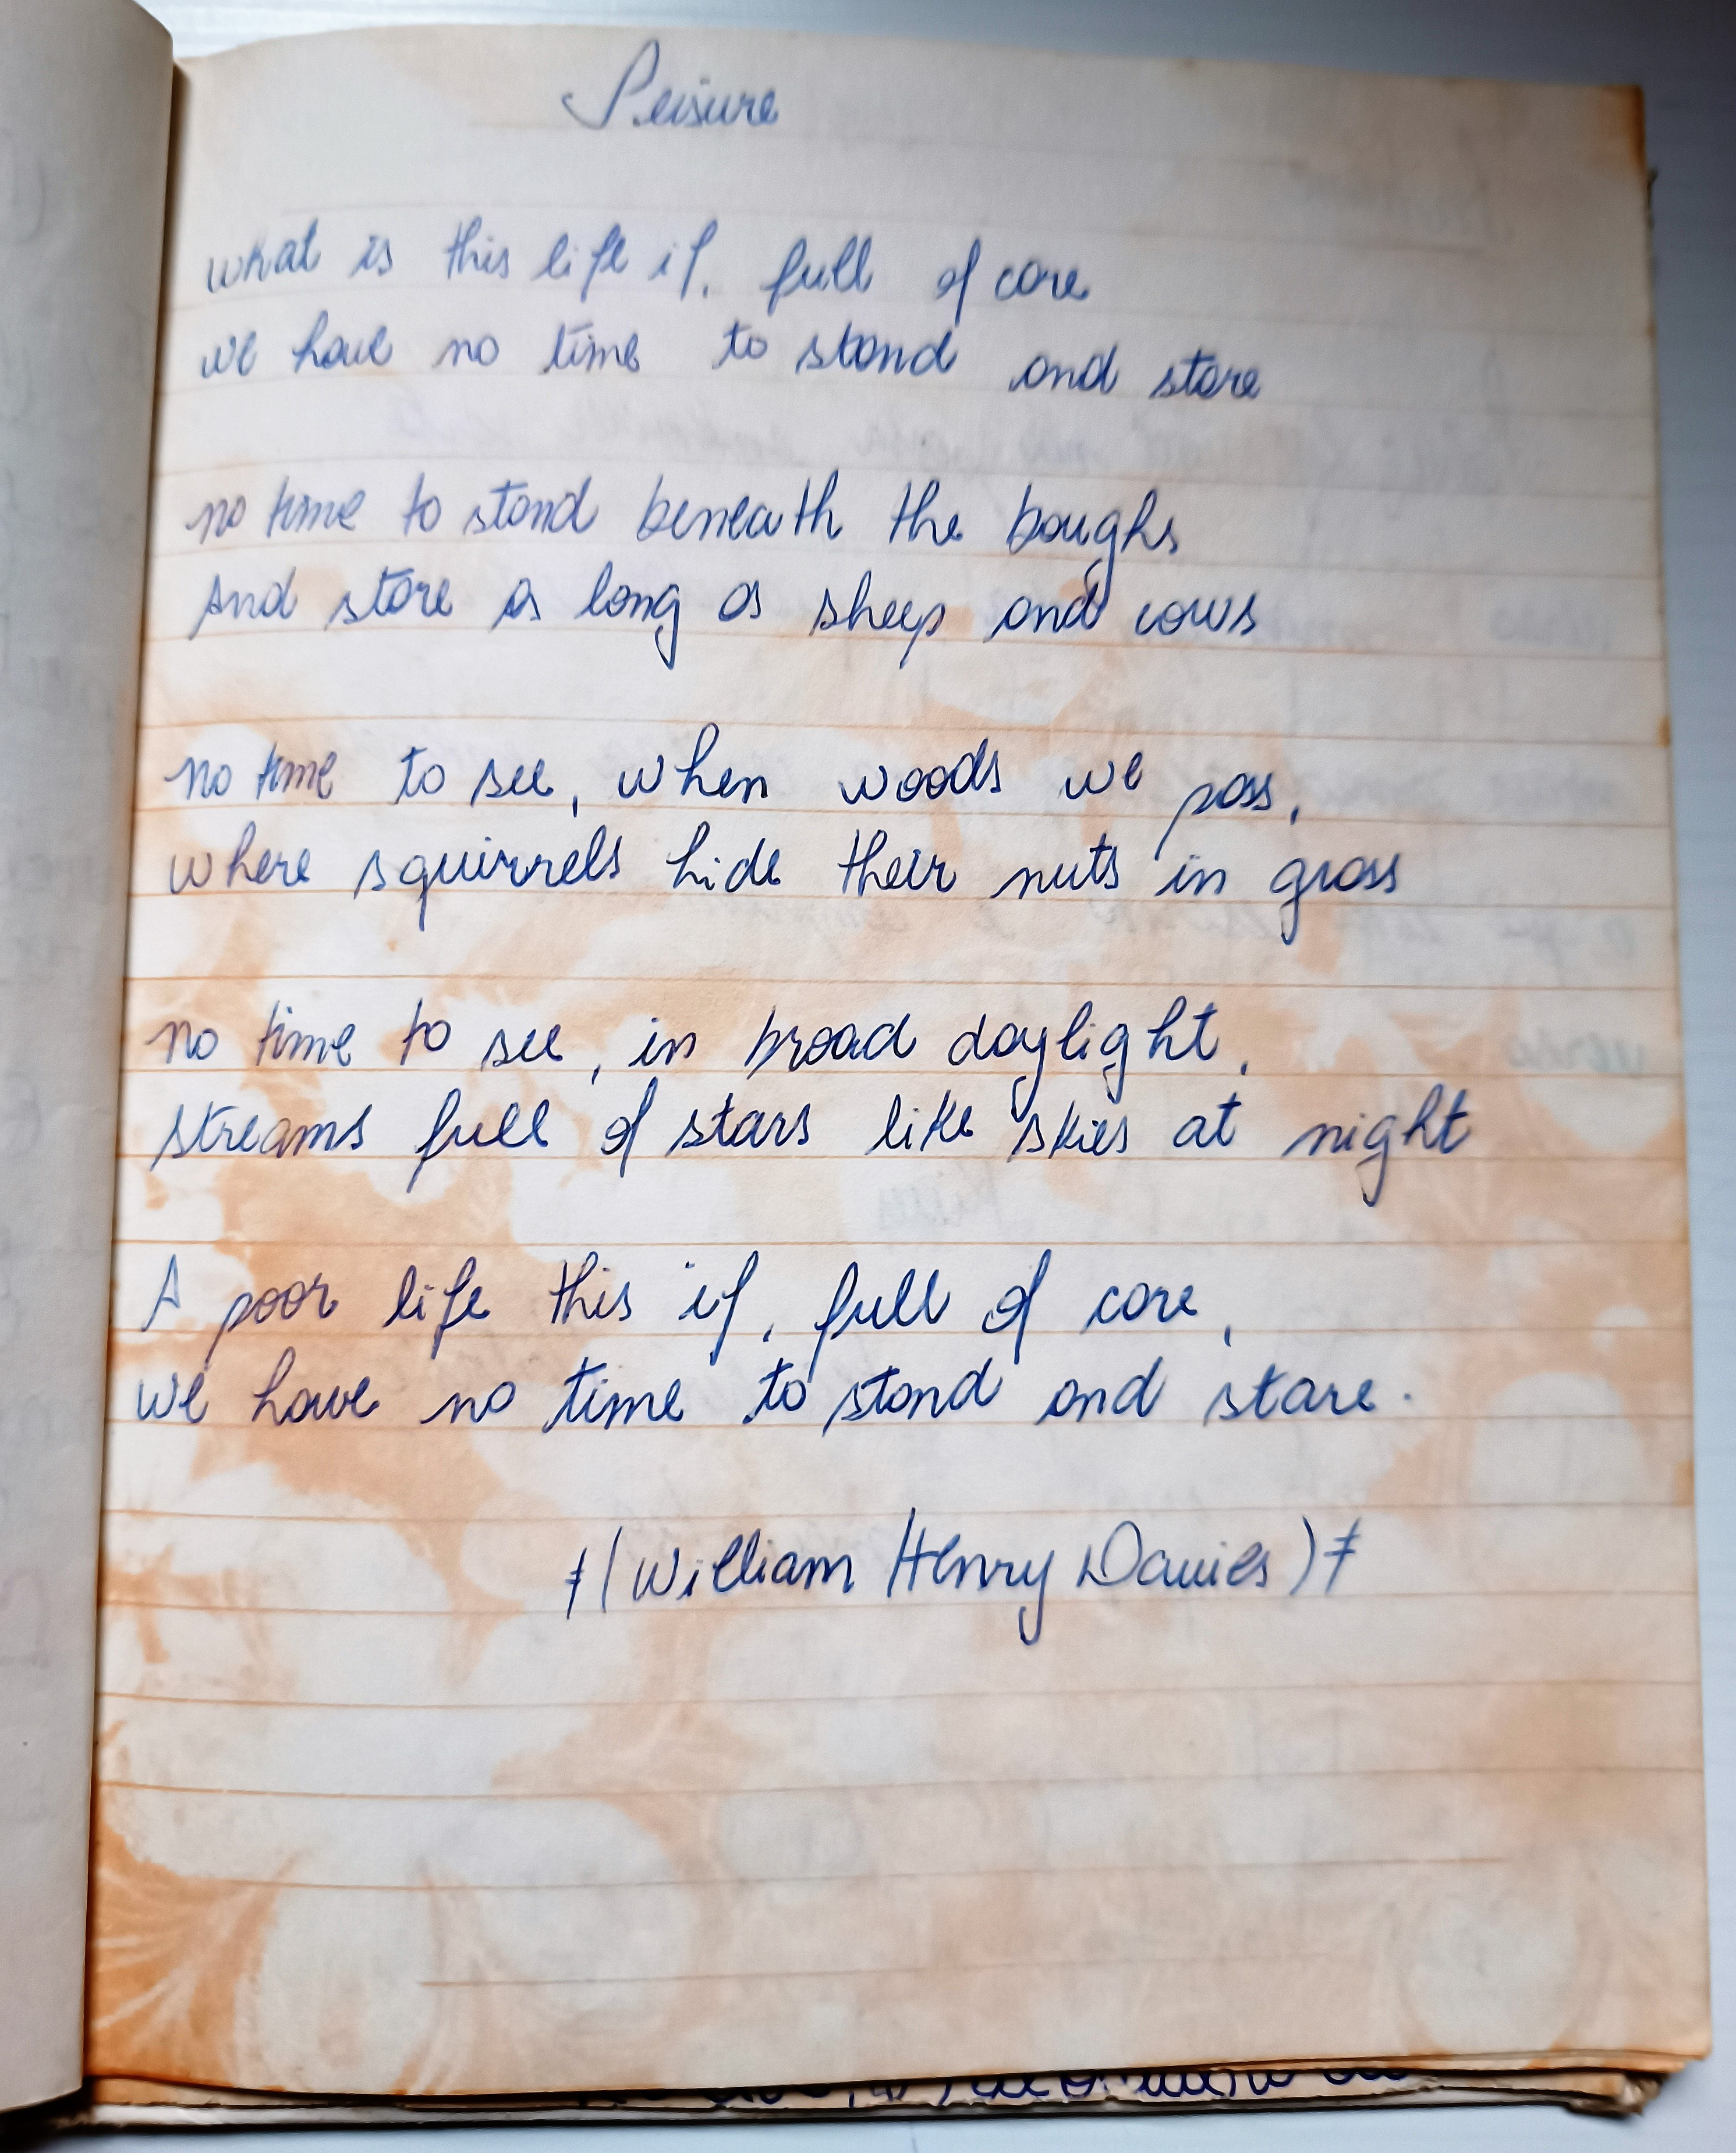 Leisure
what is this life if, full of care
we have no time to stand and stare
no time to stand beneath the boughs
And stare as long as sheep and cows
no time to see, when woods we pass,
where squirrels hide their nuts in grass
no time to see, in broad daylight,
streams full of stars like skies at night
A poor life this if, full of care,
we have no time to stand and stare.
(William Henry Davies)